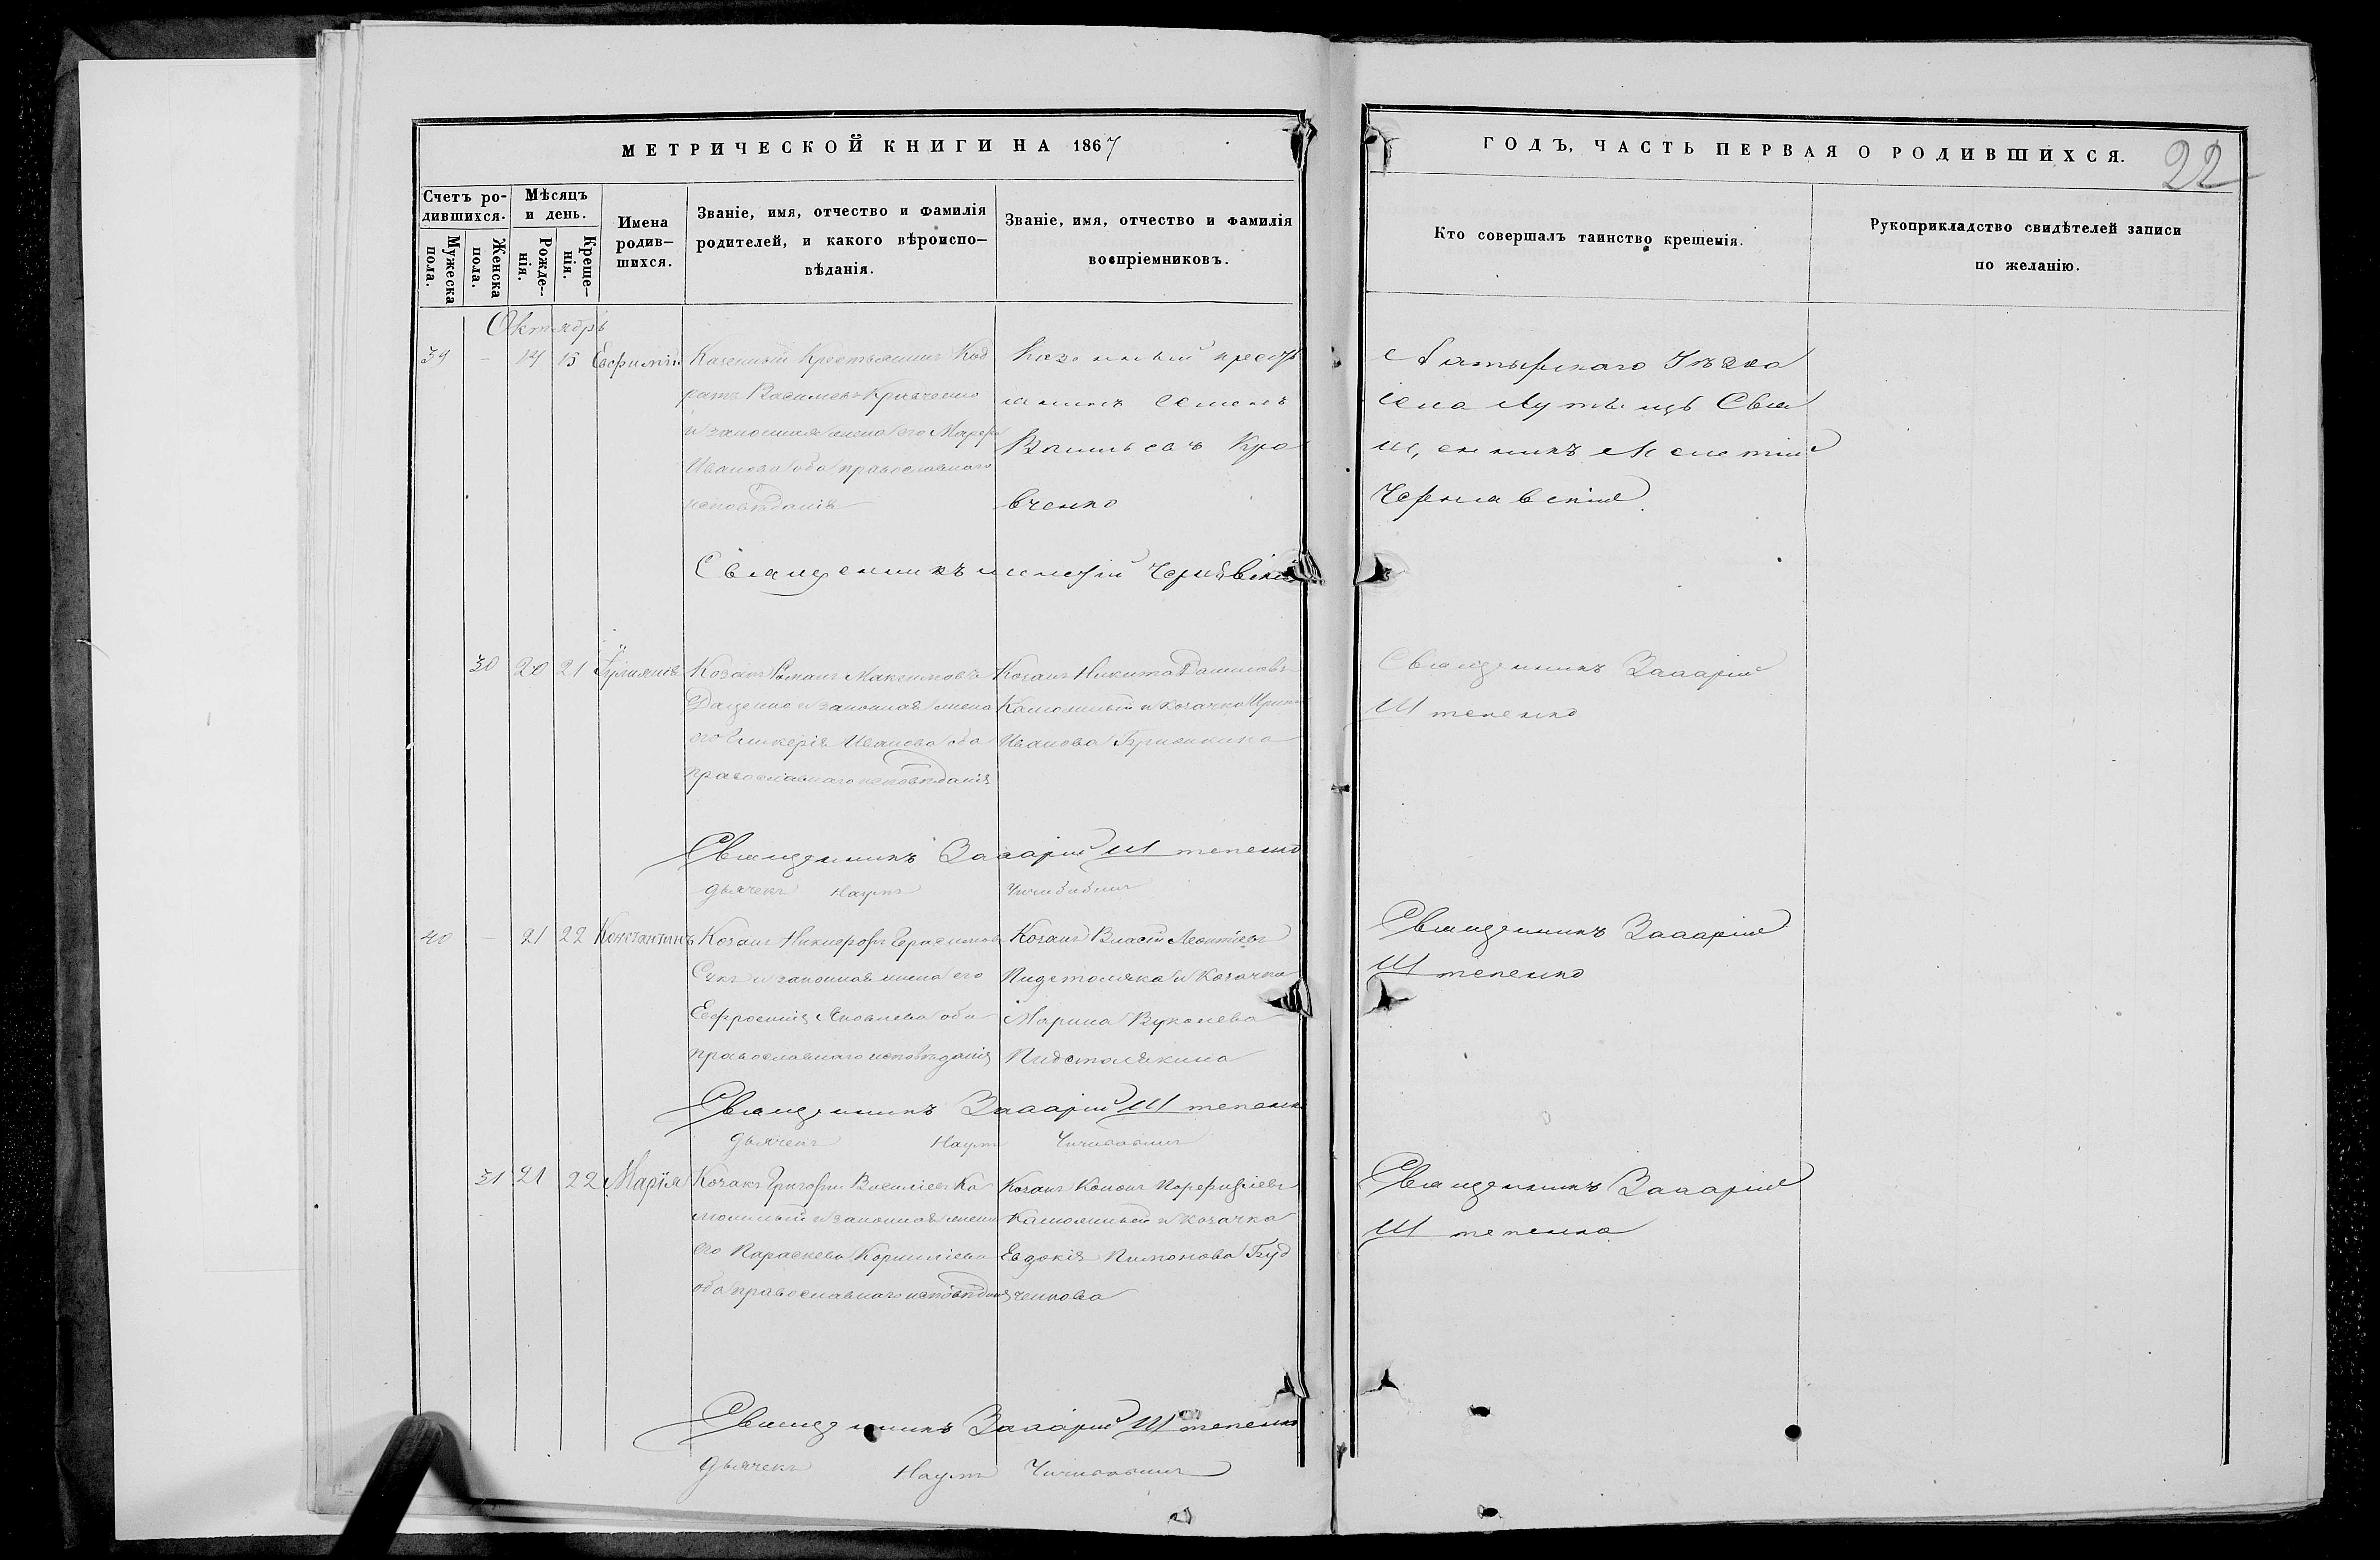 МЕТРИЧЕСКОЙ КНИГИ НА 1867
ГОДЪ, ЧАСТЬ ПЕРВАЯ О РОДИВШИХСЯ.
22
Счетъ ро-
дившихся.
Мужеска
пола.
Женска
пола.
Мѣсяцъ
и день.
Рожде-
нія.
Креще-
нія.
Имена
родив-
шихся.
Званіе, имя, отчество и фамилія
родителей, и какого вѣроиспо-
вѣданія.
Званіе, имя, отчество и фамилія
воспріемниковъ.
Кто совершалъ таинство крещенія.
Рукоприкладство свидѣтелей записи
по желанію.
Октябрь
39 - 14 15 Евфимій
Казенный крестьянинъ Код
ратъ Васильевъ Кравченко
и законная жена его Марфа
Иванова оба православнаго
исповѣданія
Казенный крестя
нинъ Семенъ
Васильевъ Кра
вченко
села Свя
щенникъ Мелетій
Чернявскій
Священникъ Мелетій Чернявскій
30 20 21 Іуліянія
Козакъ Романъ Максимовъ
Даценко и законная жена
его Гликерія Иванова оба
православнаго исповѣданія
Козакъ Никита Даниловъ
и козачка Ирина
Иванова
Священникъ Захарій
Штепенко
Священникъ Захарій Штепенко
дьячекъ Наумъ
40 - 21 22 Константинъ
Козакъ Никифоръ Герасимовъ
Сукъ и законная жена его
Евфросинія Яковлева оба
православнаго исповѣданія
Козакъ Власій Леонтіевъ
Пидстоляка и Козачка
Марина Вуколева
Пидстолякина
Священникъ Захарій
Штепенко
Священникъ Захарій Штепенко
дьячекъ Наумъ
31 21 22 Марія
Козакъ Григорій Василіевъ Ка
и законная жена
его Параскева Корниліева
оба православнаго исповѣданія
Козакъ Кононъ Порфиріевъ
и козачка
Евдокія Пимонова Гуд
ченкова
Священникъ Захарій
Штепенко
Священникъ Захарій Штепенко
дьячекъ Наумъ